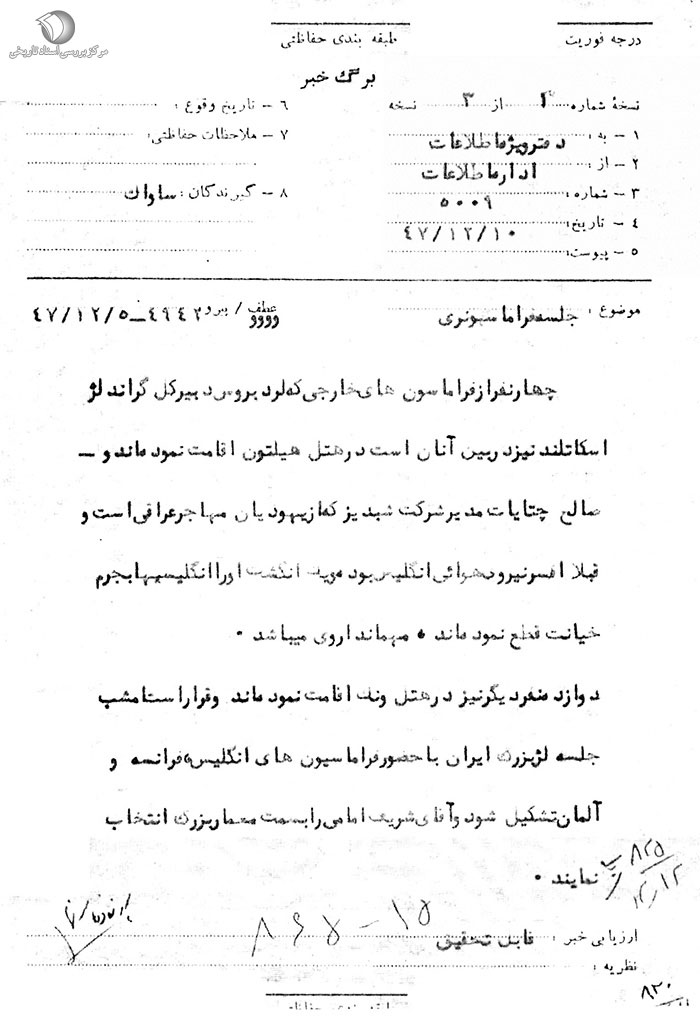 مرکز بررسی اسناد تاریخی
درجه فوریت
طبقه بندی حفاظتی
برگ خبر
نسخهٔ شماره ۲ از ۳ نسخه
۱ - به : دفترویژه اطلاعات
۲ - از : اداره اطلاعات
۳ - شماره : ۵۰۰۹
۴ - تاریخ : ۴۷/۱۲/۱۰
۵ - پیوست:
۶ - تاریخ وقوع :
۷ - ملاحظات حفاظتی:
۸ - گیرندگان : ساواک
موضوع : جلسه فراماسیونری
عطف / پیرو ۴۹۴۲-۴۷/۱۲/۵
چهارنفرازفراماسون های خارجی که لرد بروس دبیرکل گراند لژ
اسکاتلند نیزدربین آنان است درهتل هیلتون اقامت نموده اند و -
صالح چتایات مدیرشرکت شبدیز که ازیهودیان مهاجرعراقی است و
قبلا افسرنیروی هوائی انگلیس بوده ویک انگشت اورا انگلیسیها بجرم
خیانت قطع نموده اند ۰ مهمانداروی میباشد ۰
دوازده نفردیگرنیز درهتل ونک اقامت نموده اند وقراراست امشب
جلسه لژبزرگ ایران باحضورفراماسیون های انگلیس، فرانسه و
آلمان تشکیل شود وآقای شریف امامی رابسمت معماربزرگ انتخاب
نمایند ۰
۸۲۵
۱۲/۱۲
ارزیابی خبر : قابل تحقیق
۱۵ - ۸۶۷
نظریه :
۸۳۰